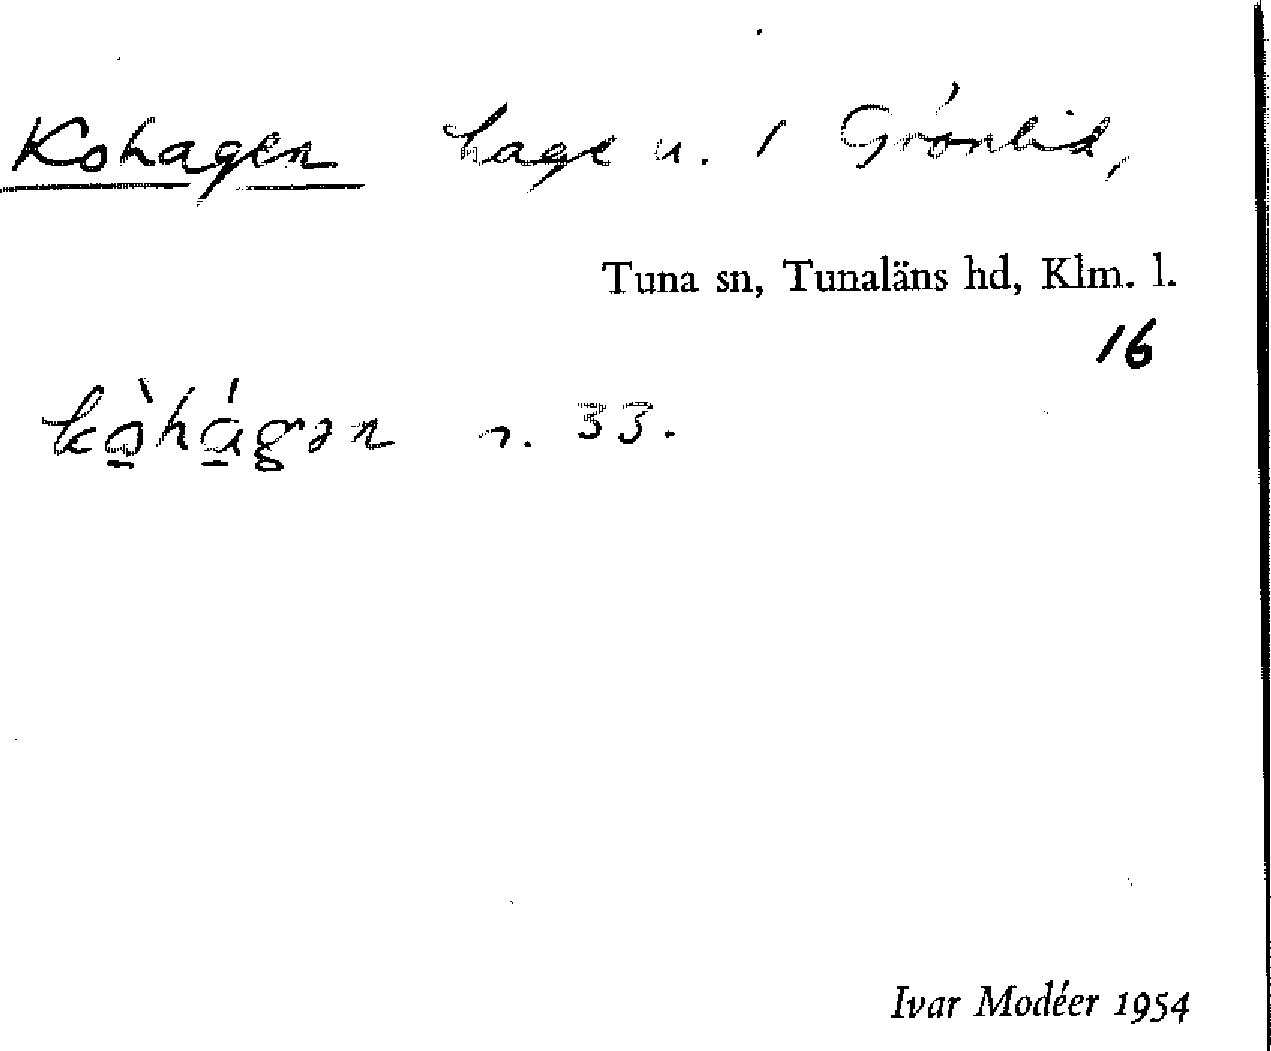 Kohagen hage u. 1 Grönlid,
Tuna sn, Tunaläns hd, Klm. l.
16
kò̠há̠gən r. 33.
Ivar Modéer 1954